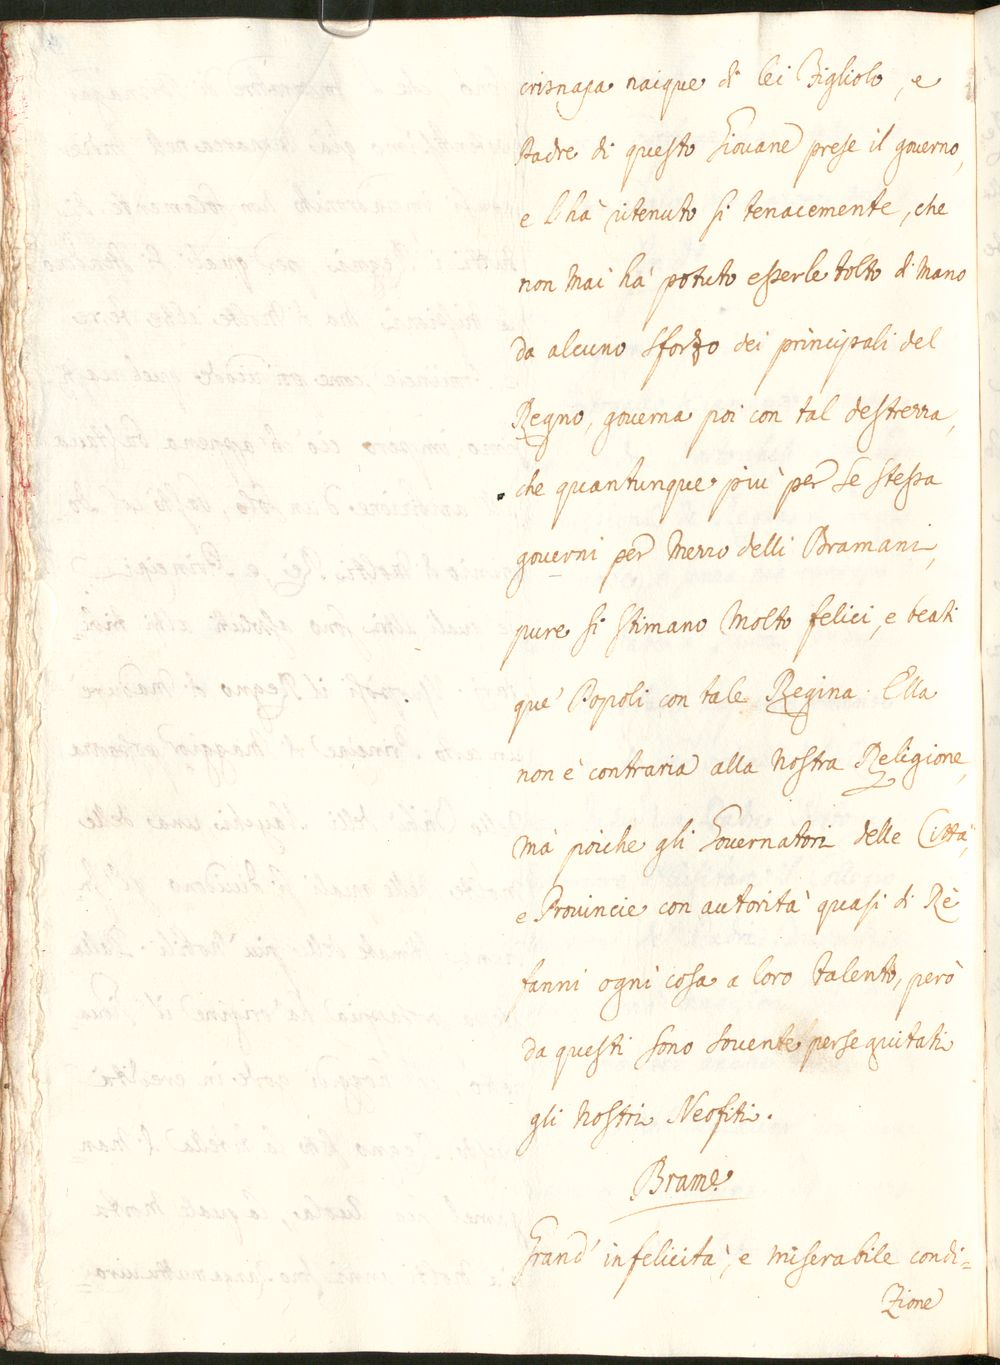 crisnapa naique di lei Figliolo, e
Padre di questo Giovane prese il governo,
e l'hà ritenuto si tenacemente, che
non mai hà potuto esserle tolto di mano
da alcuno sforzo dei principali del
Regno, governa poi con tal destrezza,
che quantunque più per se stessa
governi per mezzo delli Bramani,
pure si stimano molto felici, e beati
que' Popoli con tale Regina. Ella
non è contraria alla nostra Religione,
mà poiche gli Governatori delle Città,
e Provincie con autorità quasi di Rè
fanni ogni cosa a loro talento, però
da questi sono sovente perseguitati
gli nostri Neofiti.
Brame
Grand' infelicità, e miserabile condi=
Zione